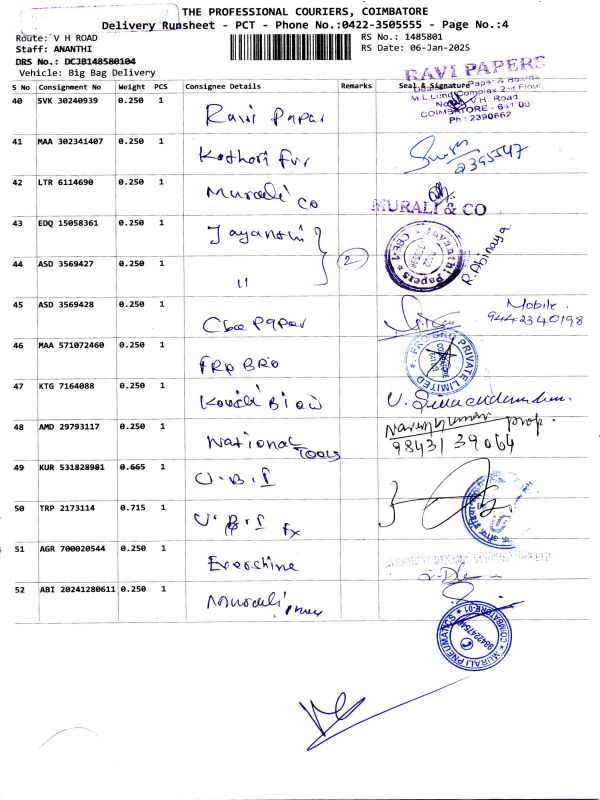 THE PROFESSIONAL COURIERS, COIMBATORE
Delivery Runsheet - PCT - Phone No.:0422-3505555 - Page No.:4
Route: V H ROAD
RS No.: 1485801
Staff: ANANTHI
RS Date: 06-Jan-2025
DRS No.: DCJB148580104
Vehicle: Big Bag Delivery
S No Consignment No Weight PCS Consignee Details Remarks Seal & Signature
RAVI PAPERS
M.L Lund Complex 2nd Floor,
V.H. Road
COIMBATORE - 641 001
Ph : 2390662
40 SVK 30240939 0.250 1 Ravi Papar
41 MAA 302341407 0.250 1 Kothari Fur 2395547
42 LTR 6114690 0.250 1 Murali Co
MURALI & CO
43 EDQ 15058361 0.250 1 Jayanthi
Jayanthi Papers
CBE-1
R. Abinaya
2
44 ASD 3569427 0.250 1 "
45 ASD 3569428 0.250 1 Cbe Papar
Mobile.
9442340198
46 MAA 571072460 0.250 1 FRP BRO
PRIVATE LIMITED
47 KTG 7164088 0.250 1
48 AMD 29793117 0.250 1 National Tools
Prop.
98431 39064
49 KUR 531828981 0.665 1 U.B.I
50 TRP 2173114 0.715 1 U.B.I Fx
51 AGR 700020544 0.250 1 Evershine
52 ABI 20241280611 0.250 1 Murali
MURALI PNEUMATICS
COIMBATORE-01